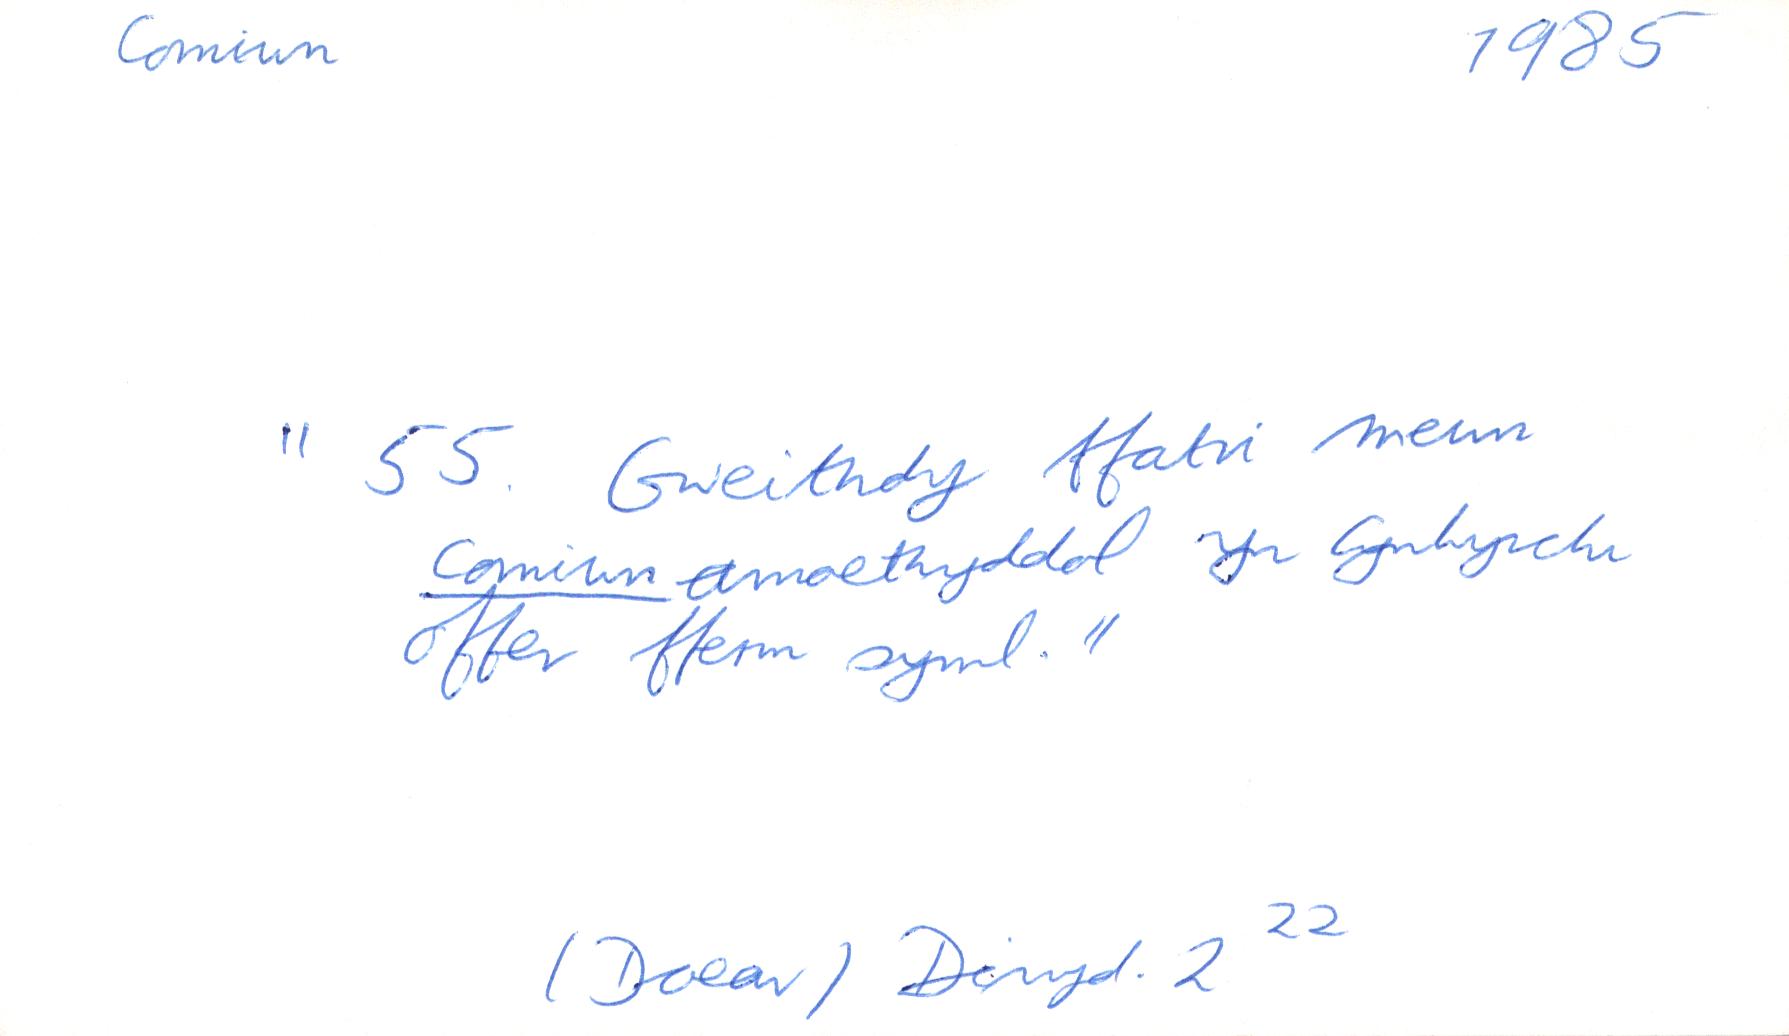 Comiwn 1985
" 55. Gweithdy ffatri mewn
comiwn amaethyddol yn cynhyrchu
offer fferm syml. "
(Daear) Diwyd. 2 22